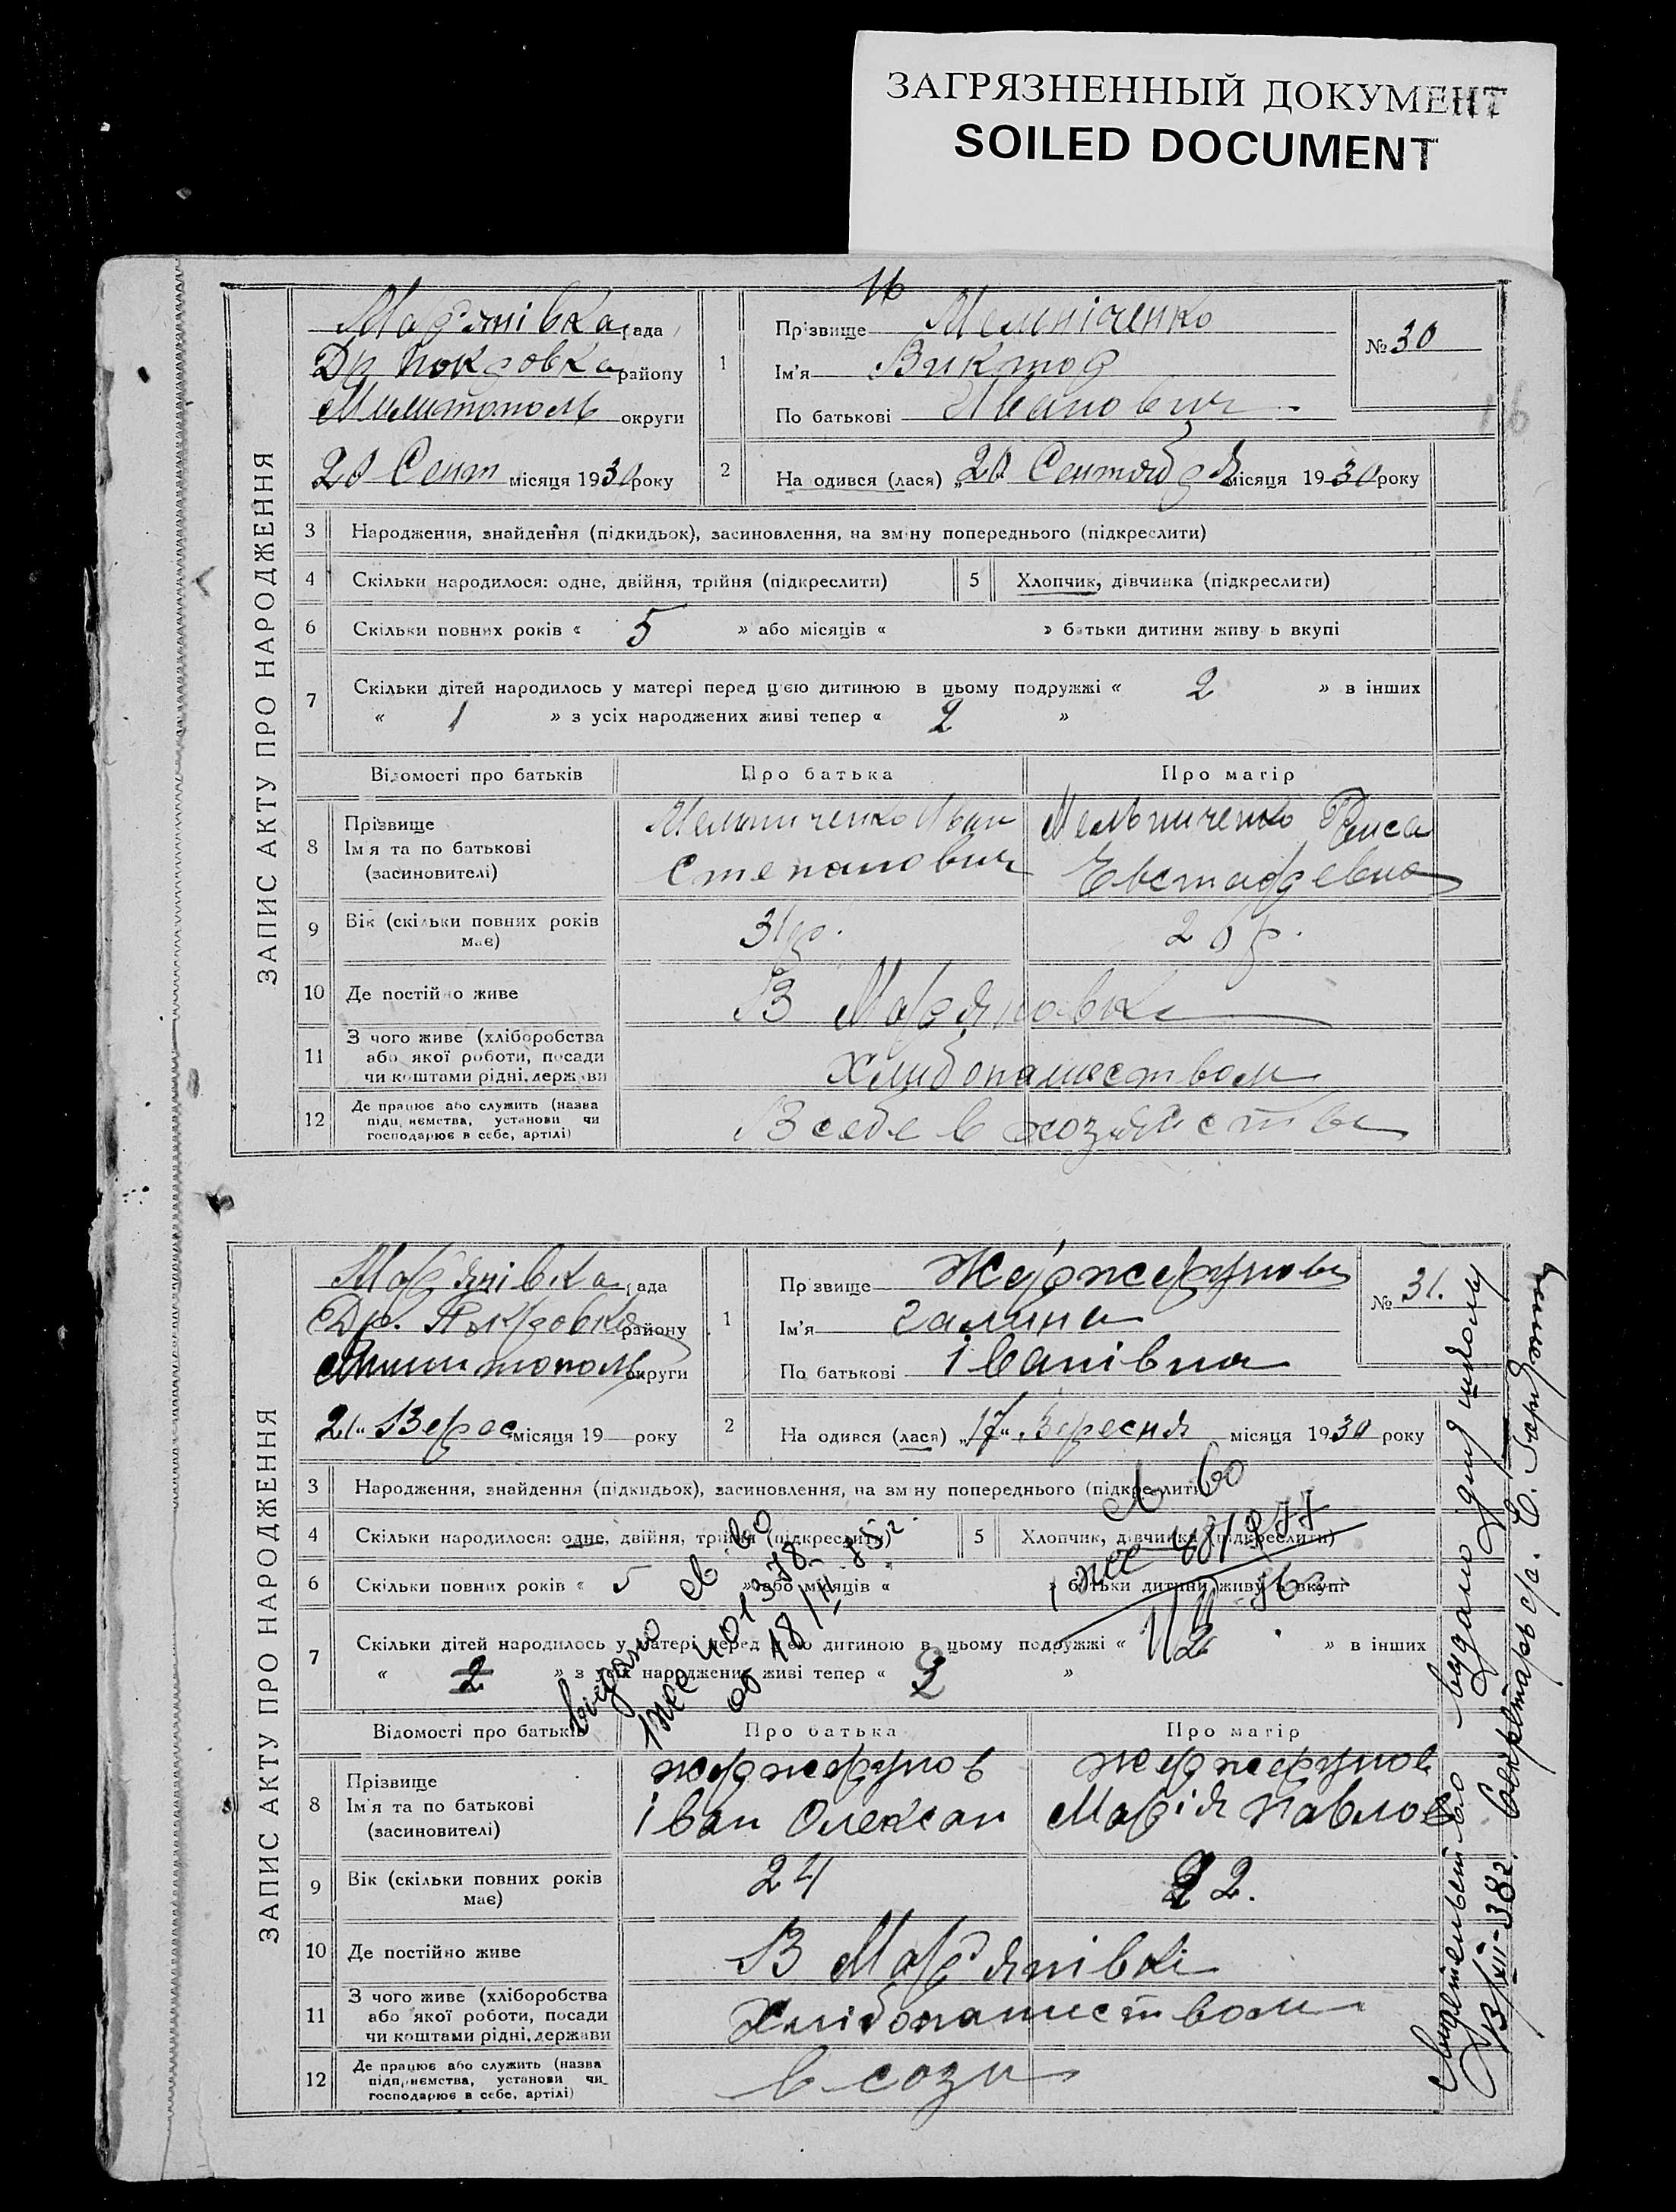 ЗАГРЯЗНЕННЫЙ ДОКУМЕНТ
SOILED DOCUMENT
16
ЗАПИС АКТУ ПРО НАРОДЖЕННЯ
Мар'янівка рада
Др Покровка району
Милитополь округи
20 Сент місяця 1930 року
1
Прізвище Мельніченко
Ім'я Виктор
По батькові Иванович
№ 30
16
2
На одився (лася) „20 Сентября місяця 1930 року
3 Народження, знайдення (підкидьок), засиновлення, на зміну попереднього (підкреслити)
4 Скільки народилося: одне, двійня, трійня (підкреслити)
5 Хлопчик, дівчинка (підкреслити)
6 Скільки повних років « 5 » або місяців « » батьки дитини живуть вкупі
7 Скільки дітей народилось у матері перед цією дитиною в цьому подружжі « 2 » в інших
« 1 » з усіх народжених живі тепер « 2 »
Відомості про батьків Про батька Про матір
8 Прізвище
Ім'я та по батькові
(засиновителі)
Мельниченко Иван
Степанович
Мельниченко Раиса
Евстафревна
9 Вік (скільки повних років
має)
31 р.
10 Де постійно живе
В Маряновке
11 З чого живе (хліборобства
або якої роботи, посади
чи коштами рідні, держави
Хлибопашеством
12 Де працює або служить (назва
підприємства, установи чи
господарює в себе, артілі)
В себе в хозяйстве
ЗАПИС АКТУ ПРО НАРОДЖЕННЯ
Мар'янівка рада
Др. Покровка району
Милитополь округи
„21" Верес місяця 19 року
1
Прізвище Жержерунова
Ім'я Галина
По батькові іванівна
№ 31.
2
На одився (лася) „17". Вересня місяця 1930 року
3 Народження, знайдення (підкидьок), засиновлення, на зміну попереднього (підкреслити)
4 Скільки народилося: одне, двійня, трійня (підкреслити)
5 Хлопчик, дівчинка (підкреслити)
6 Скільки повних років « 5 » або місяців « » батьки дитини живуть вкупі
7 Скільки дітей народилось у матері перед цією дитиною в цьому подружжі « 2 » в інших
« 2 » з усіх народжених живі тепер « 2 »
видано св-во
401378
18/
св-во
Відомості про батьків Про батька Про матір
8 Прізвище
Ім'я та по батькові
(засиновителі)
жержерунов
іван Олексан
жержерунов
Марія Павлов
9 Вік (скільки повних років
має)
24
22.
10 Де постійно живе
В Мар'янівкі
11 З чого живе (хліборобства
або якої роботи, посади
чи коштами рідні, держави
Хлібопашеством
12 Де працює або служить (назва
підприємства, установи чи
господарює в себе, артілі)
в сози
Свидетельство выдано для школы
13/XII-38г. Секретарь с/с.